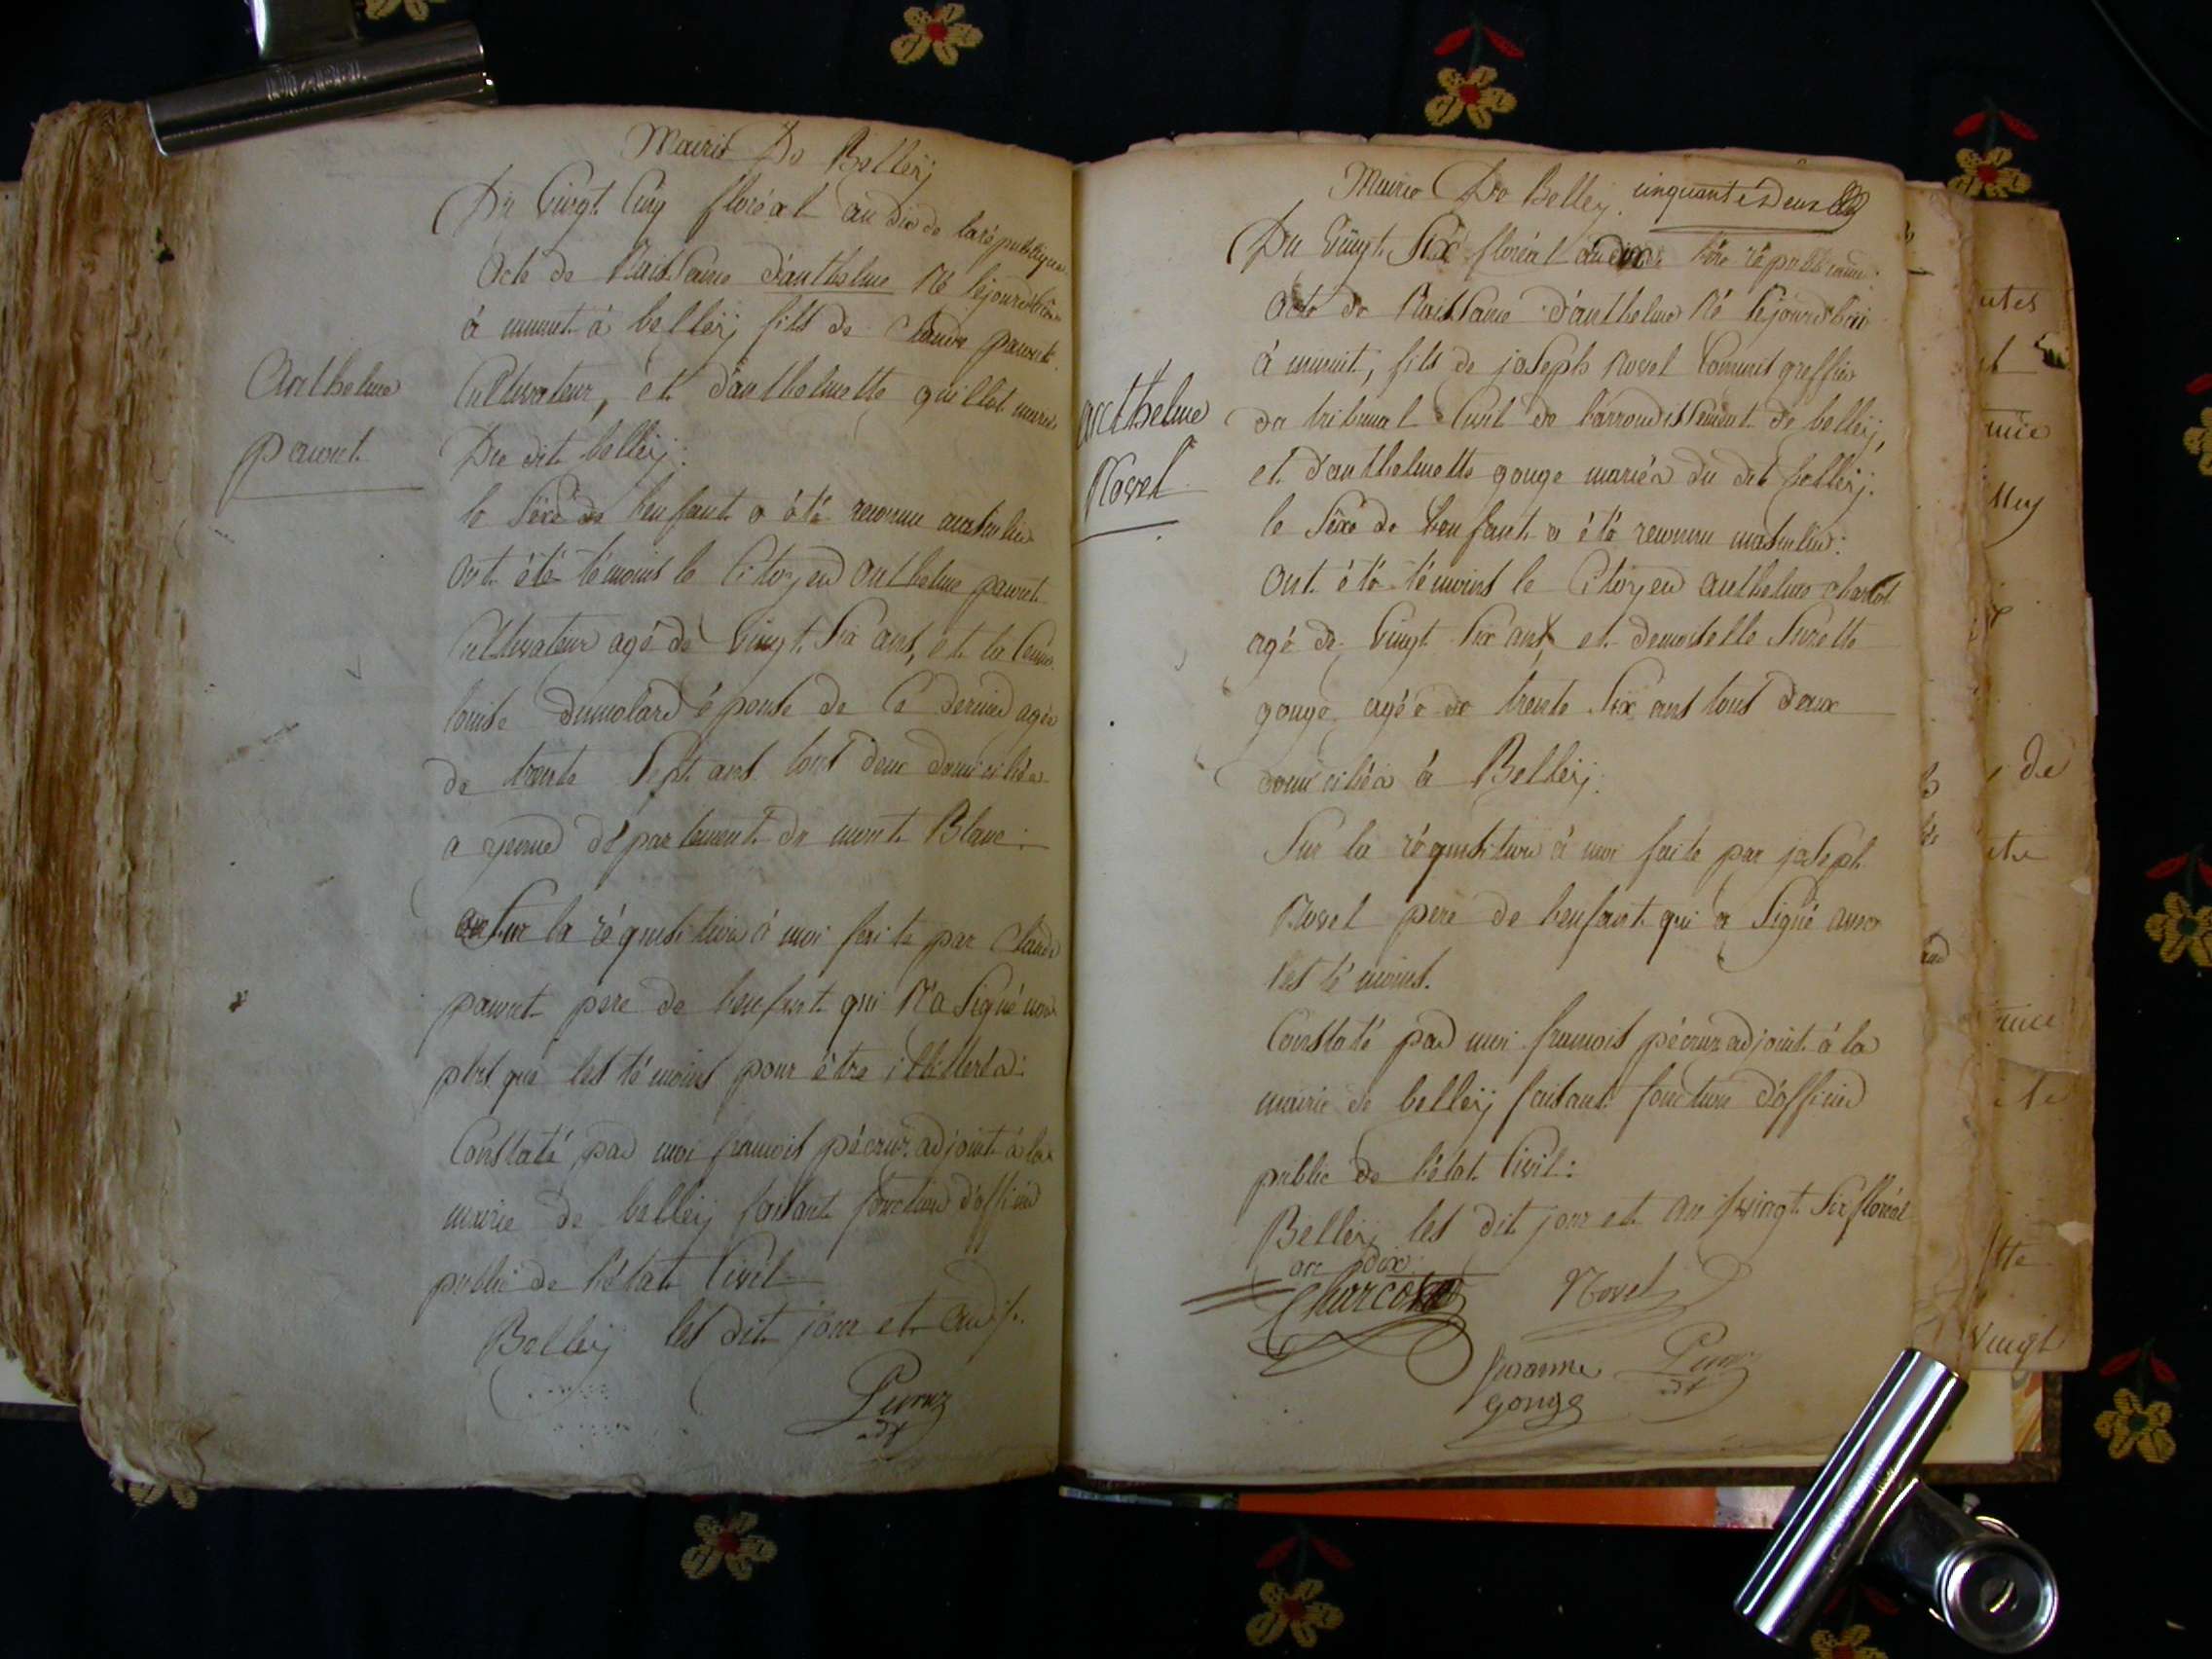 Mairie De Belleÿ
Du Vingt Cinq floréal an dix de la république
Acte de Naissance d'anthelme Né le jourd'hui
à minuit à belleÿ fils de Claude pauret
Cultivateur, et d'anthelmette guillot mariés
Du dit belleÿ:
Anthelme
pauret
le Séxe de l'enfant a été reconnu masculin
Ont été témoins le Citoyen anthelme pauret
Cultivateur agé de Vingt Six ans, et la Cenne
louise Dumolard épouse de Ce dernier agée
de trente Sept ans tous deux domiciliés
a yenne département du mont Blanc:
Sur la réquisition à moi faite par Claude
pauret pere de l'enfant qui N'a Signé non
plus que les témoins pour être illitérés:
Constaté par moi francois pécruz adjoint à la
mairie de belleÿ faisant fonction d'officier
public de l'état Civil
Belleÿ les dit jour et an
adjt
Mairie De Belleÿ. cinquante Deux
Du Vingt Six floréal an dix de l'ère républicaine:
Acte de Naissance d'anthelme Né le jourd'hui
à minuit, fils de joseph Novel Commis greffier
du tribunal Civil de l'arrondissement de belleÿ,
et d'anthelmette gouge mariés du dit belleÿ.
anthelme
Novel
le Séxe de l'enfant a été reconnu masculin:
Ont été témoins le Citoyen anthelme charcot
agé de Vingt Six ans, et demoiselle Suzette
gouge agée de trente Six ans tous deux
domiciliés à Belleÿ:
Sur la réquisition à moi faite par joseph
Novel pere de l'enfant qui a Signé avec
les témoins.
Constaté par moi francois pécruz adjoint à la
mairie de belleÿ faisant fonction d'officier
public de l'état Civil:
Belleÿ les dit jour et an vingt Six floréal
an dix
Charcot Novel
Suzanne
gouge
adjt
de
vingt